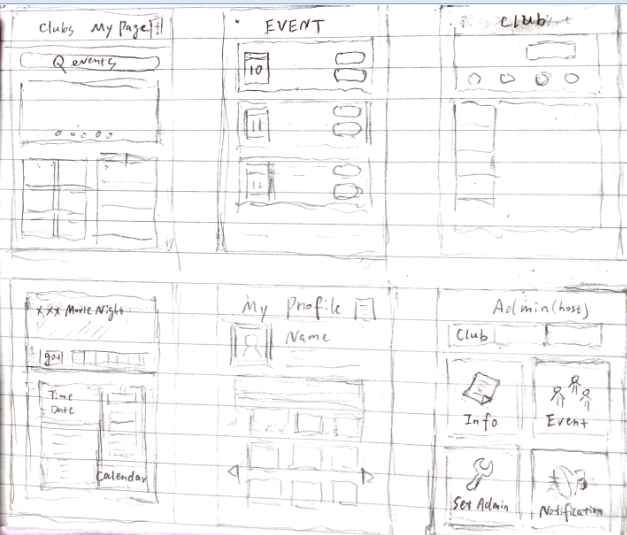 Clubs My Page
Q events
EVENT
10
11
12
Club
XXX Movie Night
go!
Time
Date
Calendar
My Profile
Name
Admin(host)
Club
Info
Event
Set Admin
Notification